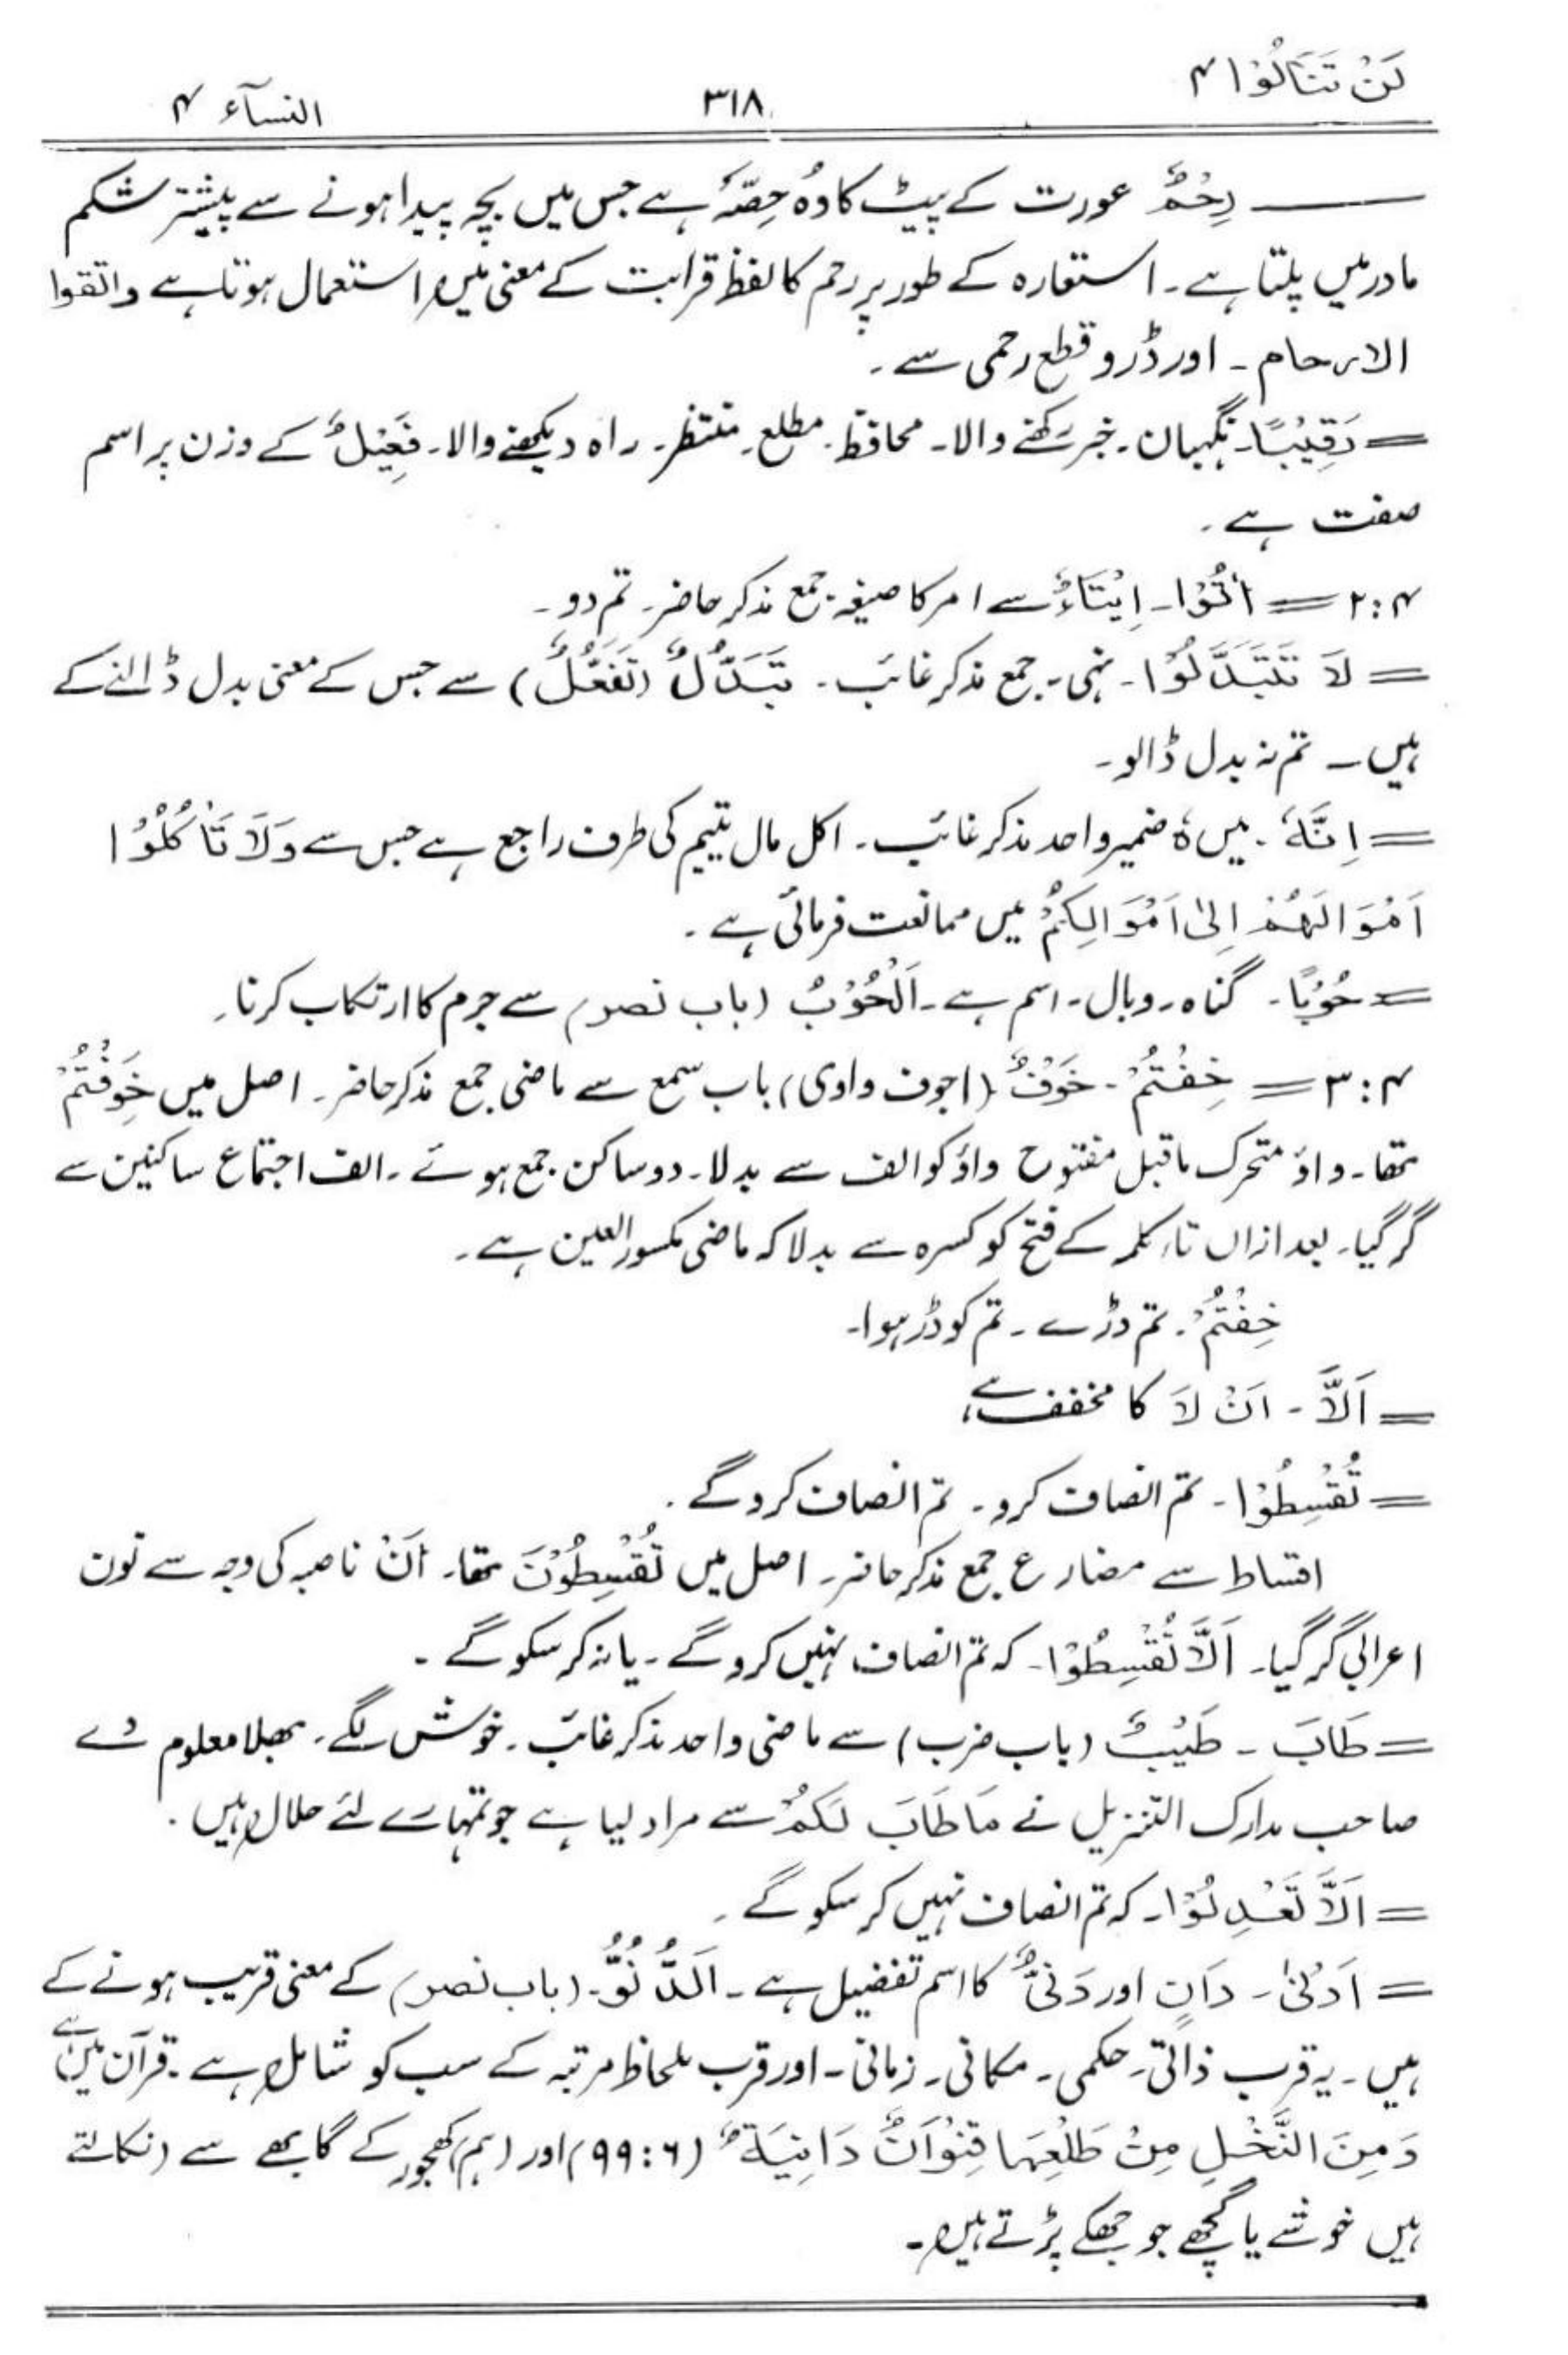 لَنْ تَنَالُوْا ۴
۳۱۸
النسآء ۴
رِحْمٌ عورت کے پیٹ کا وُہ حِصّہ ہے جس میں بچہ پیدا ہونے سے پیشتر شکم
مادر میں پلتا ہے۔ استعارہ کے طور پر رحم کا لفظ قرابت کے معنی میں استعمال ہوتا ہے واتقوا
الارحام ۔ اور ڈرو قطع رحمی سے ۔
= رَقِيْبًا۔ نگہبان ۔ خبر رکھنے والا۔ محافظ۔ مطلع۔ منتظر۔ راہ دیکھنے والا۔ فَعِيْلٌ کے وزن پر اسم
صفت ہے ۔
۲:۴ = اٰتُوْا۔ اِيْتَاءٌ سے امر کا صیغہ جمع مذکر حاضر۔ تم دو ۔
= لَا تَتَبَدَّلُوْا ۔ نہی ۔ جمع مذکر غائب ۔ تَبَدُّلٌ (تَفَعُّلٌ) سے جس کے معنی بدل ڈالنے کے
ہیں ۔ تم نہ بدل ڈالو ۔
= اِنَّهٗ ۔ میں ہٗ ضمیر واحد مذکر غائب ۔ اکل مال یتیم کی طرف راجع ہے جس سے وَلَا تَاْكُلُوْا
اَمْوَالَهُمْ اِلٰى اَمْوَالِكُمْ میں ممانعت فرمائی ہے ۔
= حُوْبًا ۔ گناہ ۔ وبال ۔ اسم ہے ۔ اَلْحُوْبُ (باب نصر) سے جرم کا ارتکاب کرنا۔
۳:۴ = خِفْتُمْ ۔ خَوْفٌ (اجوف واوی) باب سمع سے ماضی جمع مذکر حاضر۔ اصل میں خَوِفْتُمْ
تھا۔ واؤ متحرک ماقبل مفتوح واؤ کو الف سے بدلا۔ دو ساکن جمع ہوئے ۔ الف اجتماع ساکنین سے
گر گیا۔ بعد ازاں تاء کلمہ کے فتح کو کسرہ سے بدلا کہ ماضی مکسور العین ہے ۔
خِفْتُمْ ۔ تم ڈرے ۔ تم کو ڈر ہوا۔
= اَلَّا ۔ اَنْ لَا کا مخفف ہے
= تُقْسِطُوْا ۔ تم انصاف کرو ۔ تم انصاف کرو گے ۔
اقساط سے مضارع جمع مذکر حاضر۔ اصل میں تُقْسِطُوْنَ تھا۔ اَنْ ناصبہ کی وجہ سے نون
اعرابی گر گیا۔ اَلَّا تُقْسِطُوْا۔ کہ تم انصاف نہیں کرو گے ۔ یا نہ کر سکو گے ۔
= طَابَ ۔ طَيْبٌ (باب ضرب) سے ماضی واحد مذکر غائب ۔ خوش لگے۔ بھلا معلوم دے
صاحب مدارک التنزیل نے مَا طَابَ لَكُمْ سے مراد لیا ہے جو تمہارے لئے حلال ہیں ۔
= اَلَّا تَعْدِلُوْا۔ کہ تم انصاف نہیں کر سکو گے ۔
= اَدْنٰى ۔ دَانٍ اور دَنِیٌّ کا اسم تفضیل ہے ۔ اَلدُّنُوُّ۔ (باب نصر) کے معنی قریب ہونے کے
ہیں ۔ یہ قرب ذاتی۔ حکمی۔ مکانی۔ زمانی ۔ اور قرب بلحاظ مرتبہ کے سب کو شامل ہے ۔ قرآن میں ہے
وَمِنَ النَّخْلِ مِنْ طَلْعِهَا قِنْوَانٌ دَانِيَةٌ (۹۹:۶) اور (ہم) کھجور کے گابھے سے (نکالتے
ہیں خوشے یا گچھے جو جھکے پڑتے ہیں۔